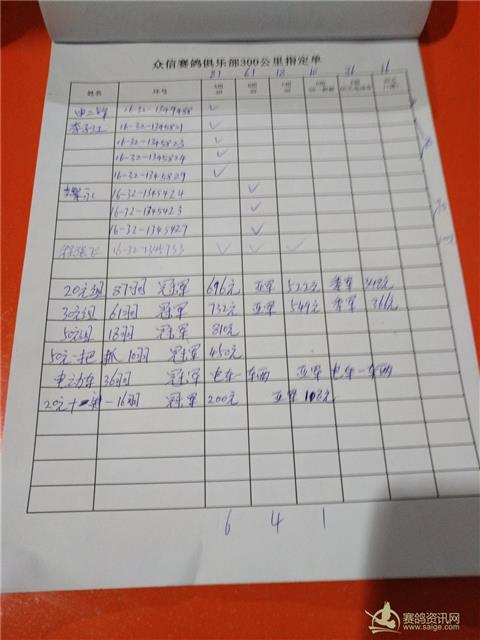 众信赛鸽俱乐部300公里指定单
81 61 18 10 36 16
姓名 环号 A组 B组
16-32-1349488 ✓
16-32-1345821 ✓
16-32-1345823 ✓
16-32-1345824 ✓
16-32-1345829 ✓
16-32-1345424 ✓
16-32-1345423 ✓
16-32-1345427 ✓
16-32-1345753 ✓ ✓ ✓
20元组 87羽 冠军 696元 亚军 522元 季军 348元
30元组 61羽 冠军 732元 亚军 549元 季军 366元
50元组 18羽 冠军 810元
50元一把抓 10羽 冠军 450元
电动车 36羽 冠军 电车一车两 亚军 电车一车两
20元十 一16羽 冠军 200元 亚军 108元
6 4 1
赛鸽资讯网
www.saige.com